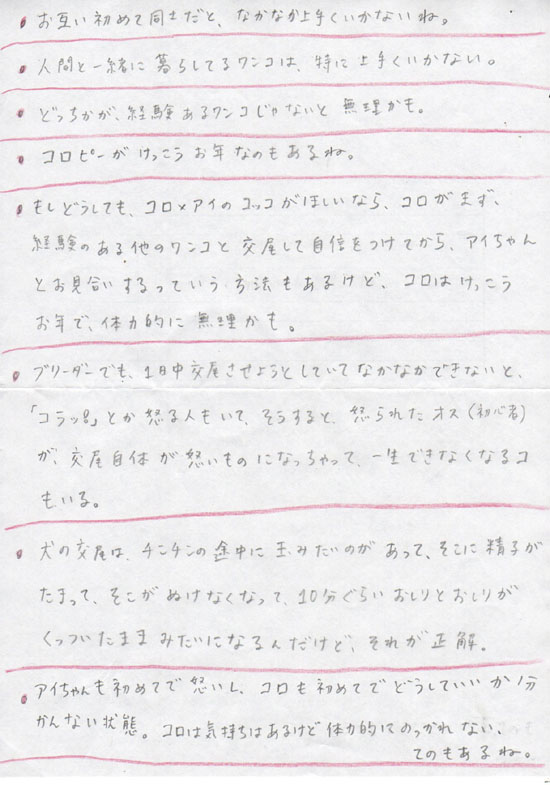 • お互い初めて同士だと、なかなか上手くいかないね。
• 人間と一緒に暮らしてるワンコは、特に上手くいかない。
• どっちかが、経験あるワンコじゃないと無理かも。
• コロピーがけっこうお年なのもあるね。
• もしどうしても、コロ×アイのコッコがほしいなら、コロがまず、
経験のある他のワンコと交尾して自信をつけてから、アイちゃん
とお見合いするっていう方法もあるけど、コロはけっこう
お年で、体力的に無理かも。
• ブリーダーでも、1日中交尾させようとしていてなかなかできないと、
「コラッ!!」とか怒る人もいて、そうすると、怒られたオス(初心者)
が、交尾自体が怒いものになっちゃって、一生できなくなるコ
もいる。
• 犬の交尾は、チンチンの途中に玉みたいのがあって、そこに精子が
たまって、そこがぬけなくなって、10分ぐらいおしりとおしりが
くっついたままみたいになるんだけど、それが正解。
• アイちゃんも初めてで怒いし、コロも初めてでどうしていいか分
かんない状態。コロは気持ちはあるけど体力的にのっかれない、
てのもあるね。